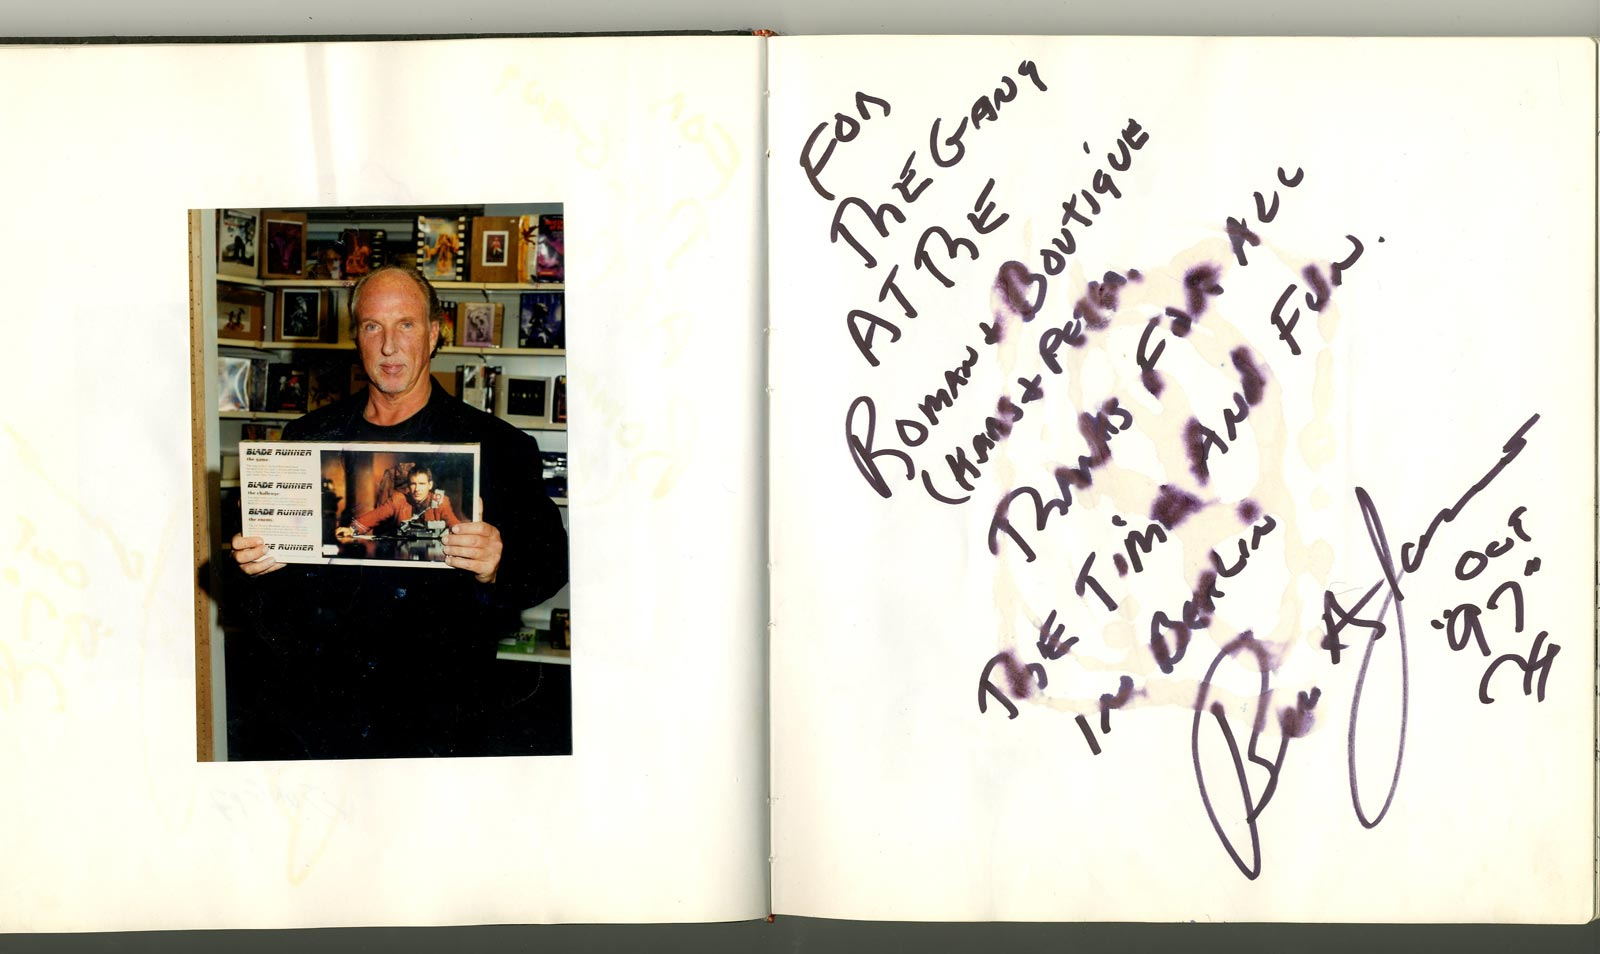 BLADE RUNNER
the game:
BLADE RUNNER
the challenge:
BLADE RUNNER
the enemy:
DE RUNNER
FOR
THE GANG
AT THE
ROMAN & BOUTIQUE
(HANS & PETRA.
THANKS FOR ALL
THE TIME AND FUN.
IN BERLIN
OCT
'97"